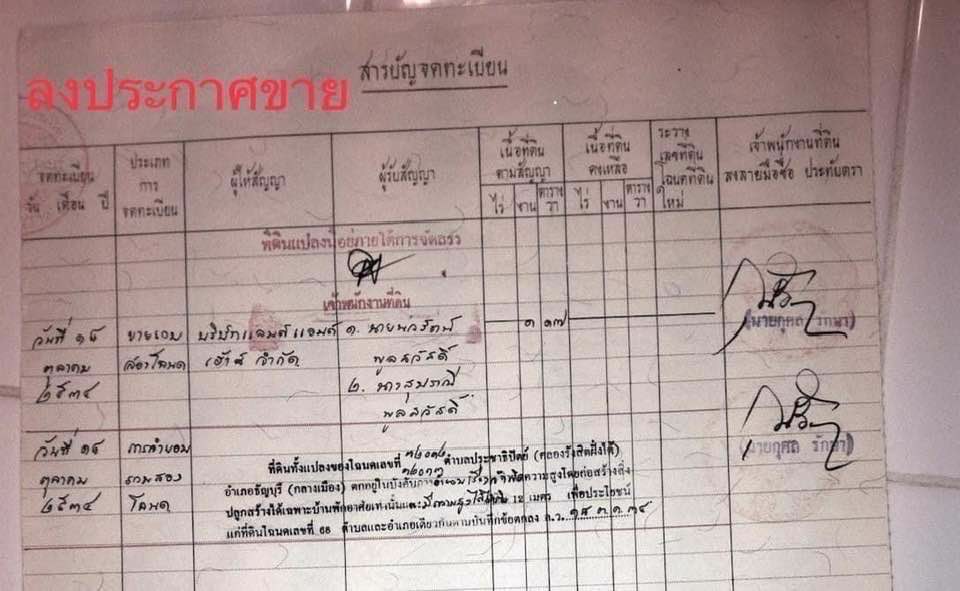 สารบัญจดทะเบียน
ลงประกาศขาย
จดทะเบียน
วัน เดือน ปี
ประเภท
การ
จดทะเบียน
ผู้ให้สัญญา
ผู้รับสัญญา
เนื้อที่ดิน
ตามสัญญา
ไร่ งาน ตาราง
วา
เนื้อที่ดิน
คงเหลือ
ไร่ งาน ตาราง
วา
ระวาง
เลขที่ดิน
โฉนดที่ดิน
ใหม่
เจ้าพนักงานที่ดิน
ลงลายมือชื่อ ประทับตรา
ที่ดินแปลงนี้อยู่ภายใต้การจัดสรร
เจ้าพนักงานที่ดิน
วันที่ ๑๘ ขาย บริษัทแลนด์แอนด์ ๑. นาย ๑ ๑๗
ตุลาคม สองโฉนด เฮ้าส์ จำกัด พูลสวัสดิ์
๒๕๓๔ ๒. นาง
พูลสวัสดิ์
(นายกุศล รักษา)
วันที่ ๑๘ ภาระจำยอม
ตุลาคม รวมสอง
๒๕๓๔ โฉนด
ที่ดินทั้งแปลงของโฉนดเลขที่ ตำบลประชาธิปัตย์ (คลองรังสิตฝั่งใต้)
อำเภอธัญบุรี (กลางเมือง) ตกอยู่ในบังคับภาระจำยอมเรื่อง ความสูงโดยก่อสร้างสิ่ง
ปลูกสร้างได้เฉพาะบ้านพักอาศัยเท่านั้นและมีความสูงได้ไม่เกิน 12 เมตร เพื่อประโยชน์
แก่ที่ดินโฉนดเลขที่ 66 ตำบลและอำเภอเดียวกันตามบันทึกข้อตกลง ล.ว. ๑๘ ต.ค. ๓๔
(นายกุศล รักษา)